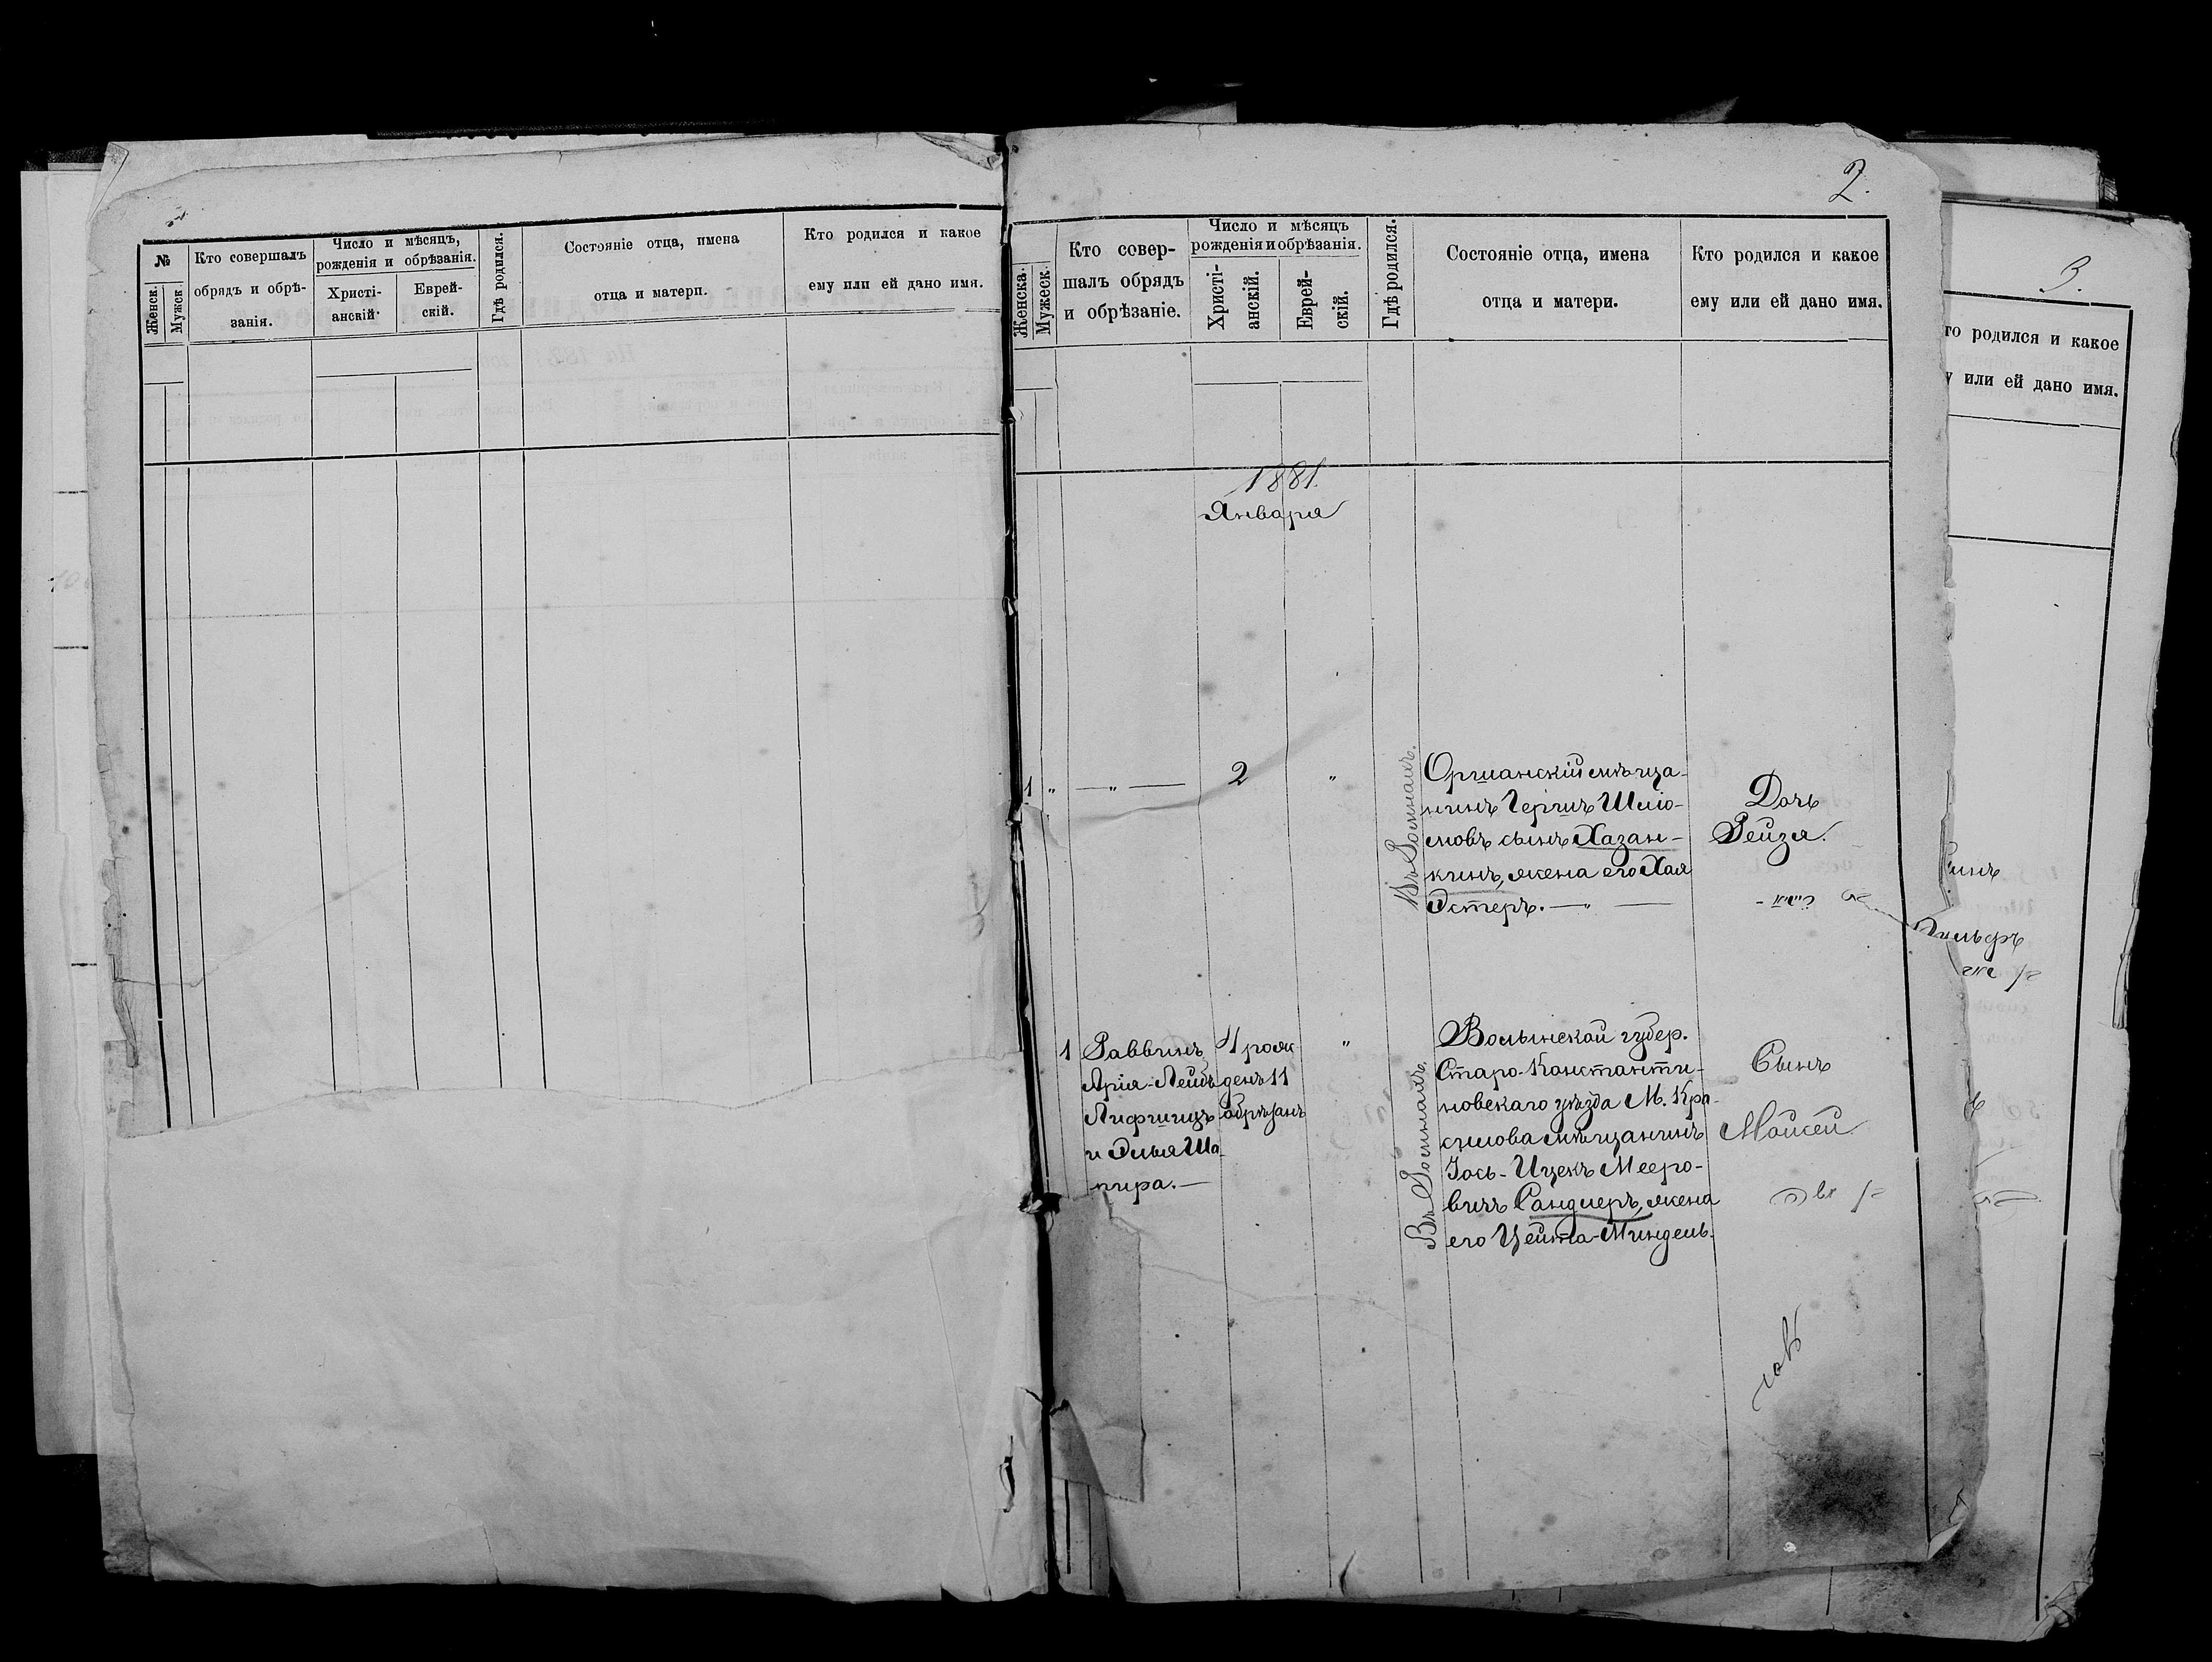 №
Женск.
Мужск.
Кто совершалъ
обрядъ и обрѣ-
занія.
Число и мѣсяцъ,
рожденія и обрѣзанія.
Христі-
анскій.
Еврей-
скій.
Гдѣ родился.
Состояніе отца, имена
отца и матери.
Кто родился и какое
ему или ей дано имя.
2.
Женска.
Мужеск.
Кто совер-
шалъ обрядъ
и обрѣзаніе.
Число и мѣсяцъ
рожденія и обрѣзанія.
Христі-
анскій.
Еврей-
скій.
Гдѣ родился.
Состояніе отца, имена
отца и матери.
Кто родился и какое
ему или ей дано имя.
1881.
Января
1 " — " — 2 "
Въ Ромнахъ.
Оршанскій мѣща-
нинъ Гершъ Шлio-
мовъ сынъ Хазан-
кинъ, жена его Хая
Эстеръ. — " —
Дочь
Рейзя.
1
Раввинъ
Арія-Лейбъ
Лифшицъ
и Элья Ша-
пира. —
4 рож-
денъ 11
обрѣзанъ
"
Въ Ромнахъ.
Волынской губер.
Старо-Константи-
новскаго уѣзда М. Кра-
силова мѣщанинъ
Іось-Ицекъ Мееро-
вичъ Сандлеръ, жена
его Цейта-Миндель.
Сынъ
Мойсей
3.
то родился и какое
у или ей дано имя.